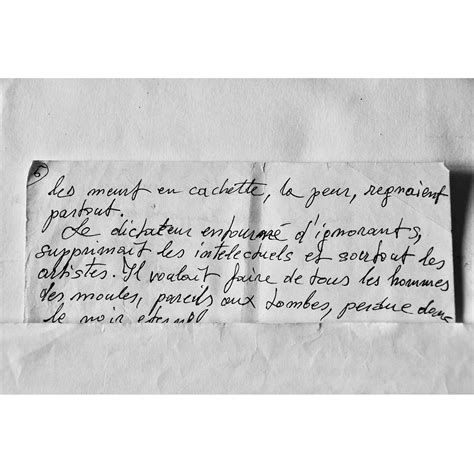 6
les meurt en cachette, la peur, regnaient
partout.
Le dictateur entouré d'ignorants,
supprimait les intelectuels et surtout les
artistes. Il voulait faire de tous les hommes
des moules, pareils aux tombes, perdue dans
le noir eternel